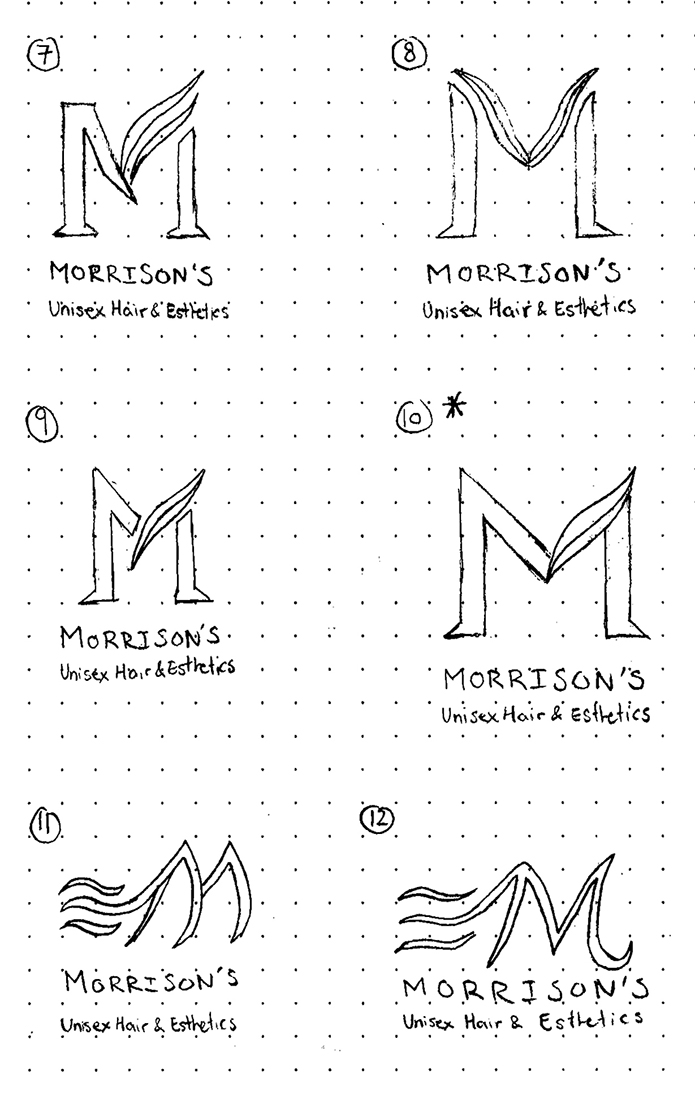 7
MORRISON'S
Unisex Hair & Esthetics
8
MORRISON'S
Unisex Hair & Esthetics
9
MORRISON'S
Unisex Hair & Esthetics
10 *
MORRISON'S
Unisex Hair & Esthetics
11
M
MORRISON'S
Unisex Hair & Esthetics
12
M
MORRISON'S
Unisex Hair & Esthetics